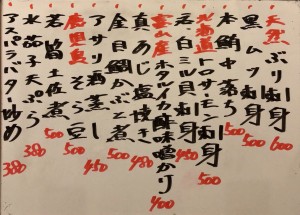 天然ぶり刺身 600
黒ムツ刺身 500
本鮪中落ち 500
北海道トロサーモン刺身 500
白ミル貝刺身 450
富山産ホタルイカ酢味噌がけ 400
真あじ塩焼き 480
金目鯛かぶと煮 500
アサリ酒蒸し 450
鹿児島そら豆 500
若筍土佐煮 500
水茄子天ぷら 380
アスパラバター炒め 380